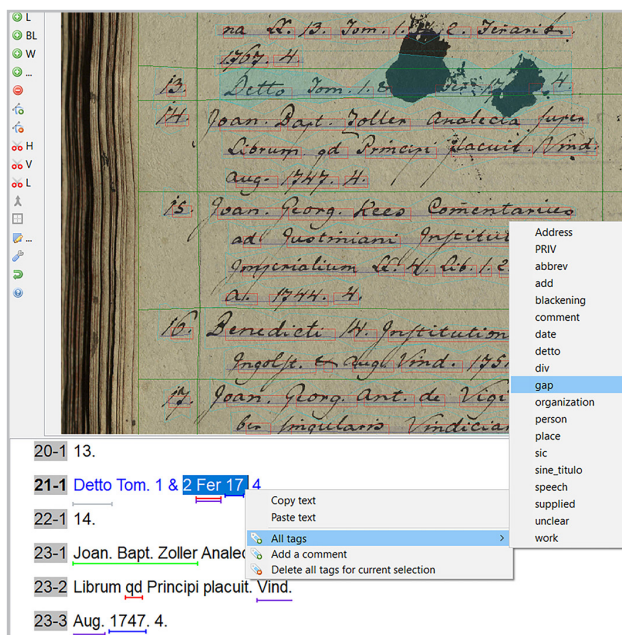 L
BL
W
...
H
V
L
...
na LL. 13. Tom. 1. 2.
1767. 4.
13. Detto Tom. 1. & 17 4
14. Joan. Bapt. Zoller Analecta
Librum qd Principi placuit. Vind.
Aug. 1747. 4.
15. Joan. Georg. Kees Comentarius
ad Justiniani Institut
Imperialium LL. 4. Lib. 1. 2.
a. 1744. 4.
16. Benedicti 14. Institution
Ingolst. & Aug. Vind. 175
17. Joan. Georg. Ant. de Vigi
ber singularis Vindician
Address
PRIV
abbrev
add
blackening
comment
date
detto
div
gap
organization
person
place
sic
sine_titulo
speech
supplied
unclear
work
20-1 13.
21-1 Detto Tom. 1 & 2 Fer 17 4
22-1 14.
23-1 Joan. Bapt. Zoller Analec
23-2 Librum qd Principi placuit. Vind.
23-3 Aug. 1747. 4.
Copy text
Paste text
All tags
Add a comment
Delete all tags for current selection